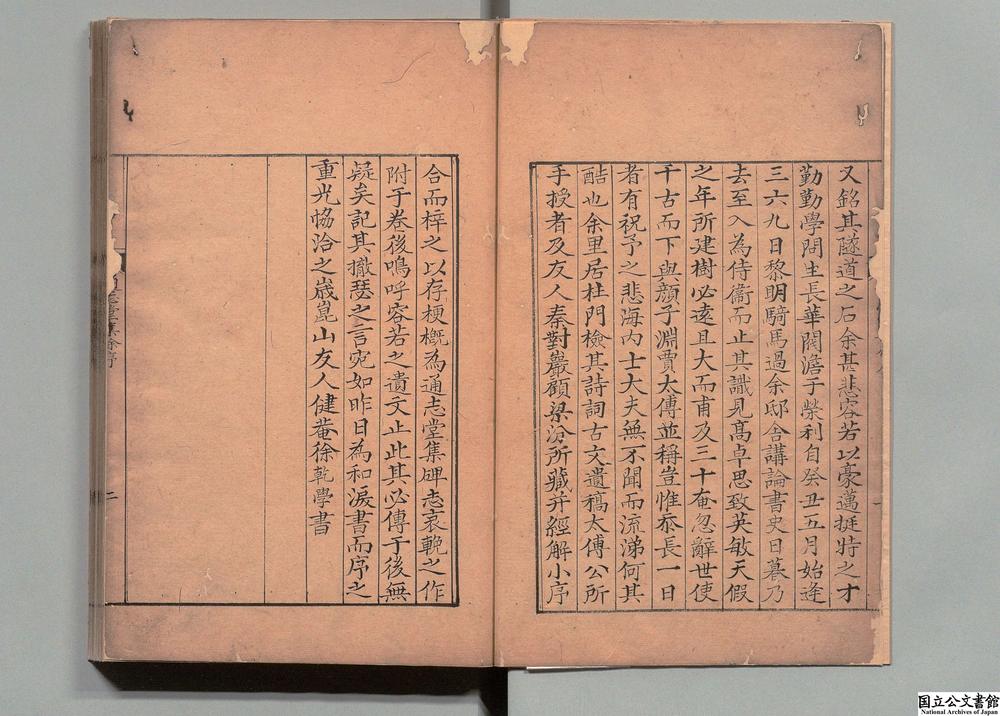 又銘其隧道之石余甚悲容若以豪邁挺特之才
勤勤學問生長華閥澹于榮利自癸丑五月始逢
三六九日黎明騎馬過余邸舍講論書史日暮乃
去至入為侍衞而止其識見髙卓思致英敏天假
之年所建樹必遠且大而甫及三十奄忽辭世使
千古而下與顔子淵賈太傅並稱豈惟忝長一日
者有祝予之悲海内士大夫無不聞而流涕何其
酷也余里居杜門檢其詩詞古文遺稿太傅公所
手授者及友人秦對巖顧梁汾所藏并經解小序
合而梓之以存梗概為通志堂集碑志哀輓之作
附于卷後嗚呼容若之遺文止此其必傳于後無
疑矣記其撤瑟之言宛如昨日為和淚書而序之
重光恊洽之歳崑山友人健菴徐乾學書
二
国立公文書館
National Archives of Japan